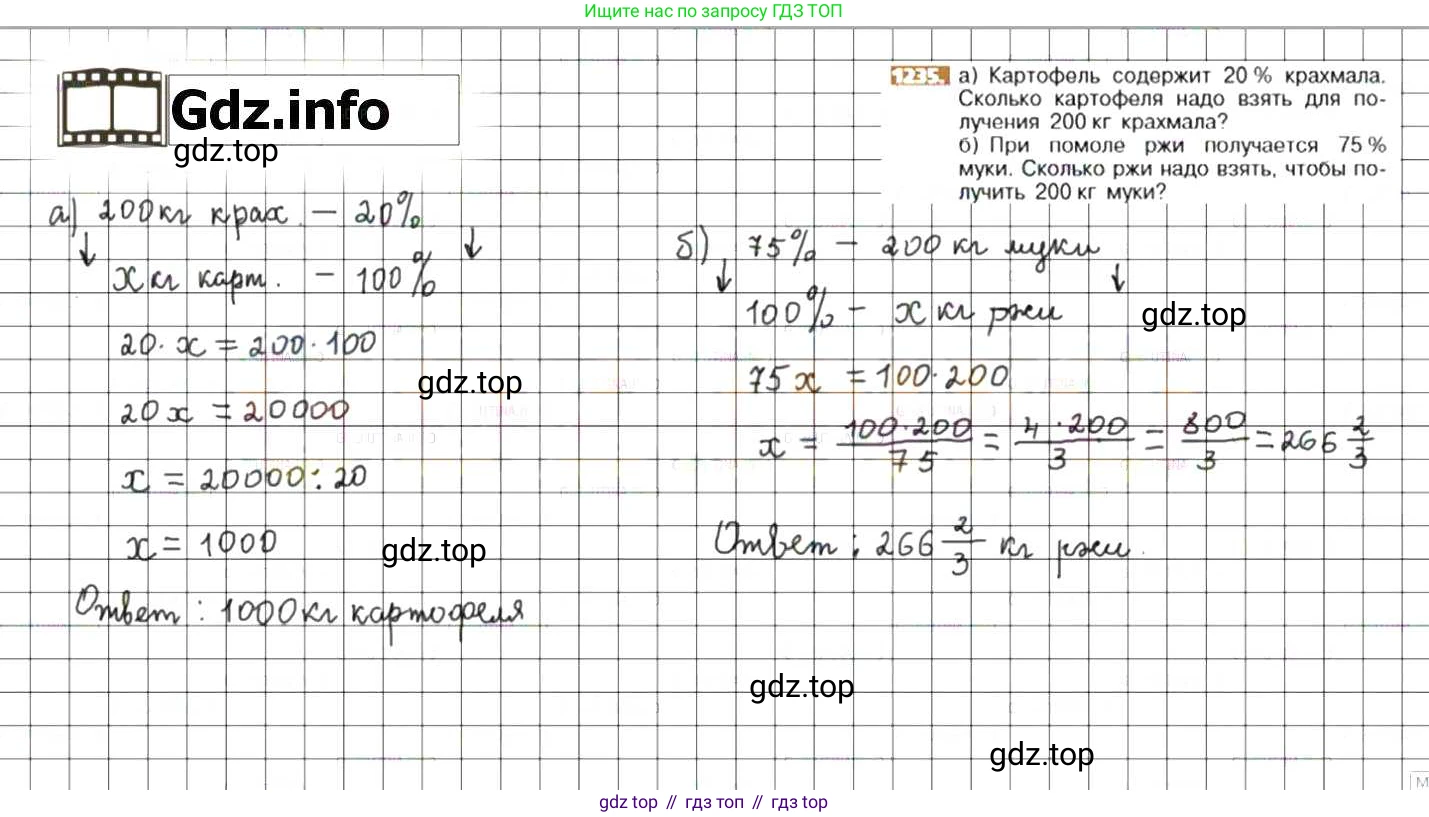 Ищите нас по запросу ГДЗ ТОП
Gdz.info
gdz.top
1235. а) Картофель содержит 20 % крахмала.
Сколько картофеля надо взять для по-
лучения 200 кг крахмала?
б) При помоле ржи получается 75 %
муки. Сколько ржи надо взять, чтобы по-
лучить 200 кг муки?
а) 200 кг крах. — 20%
↓ ↓
x кг карт. — 100%
20 · x = 200 · 100
gdz.top
20x = 20000
x = 20000 : 20
x = 1000
gdz.top
Ответ : 1000 кг картофеля
б) 75% — 200 кг муки
↓ ↓
100% — x кг ржи
gdz.top
75x = 100·200
x = 100·200/75 = 4·200/3 = 800/3 = 266 2/3
Ответ : 266 2/3 кг ржи.
gdz.top
gdz.top
М
gdz top // гдз топ // gdz top